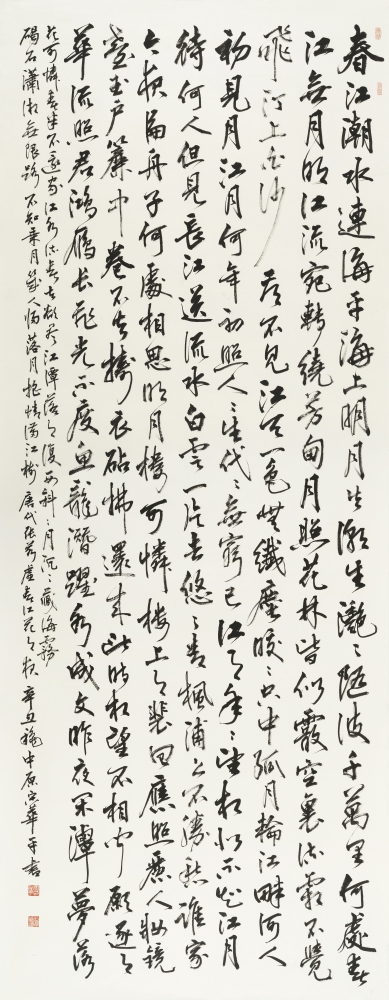 春江潮水連海平海上明月共潮生灔〻隨波千萬里何處春
江無月明江流宛轉繞芳甸月照花林皆似霰空裏流霜不覺
飛汀上白沙看不見江天一色無纖塵皎〻空中孤月輪江畔何人
初見月江月何年初照人〻生代〻無窮已江月年〻望相似不知江月
待何人但見長江送流水白雲一片去悠〻青楓浦上不勝愁誰家
今夜扁舟子何處相思明月樓可憐樓上月裴回應照離人妝鏡
臺玉戶簾中卷不去擣衣砧拂還來此時相望不相聞願逐月
華流照君鴻雁長飛光不度魚龍潛躍水成文昨夜閑潭夢落
花可憐春半不還家江水流春去欲盡江潭落月復西斜〻月沉〻藏海霧
碣石瀟湘無限路不知乘月幾人歸落月搖情滿江樹唐代張若虛春江花月夜辛丑穐中原宗華平書